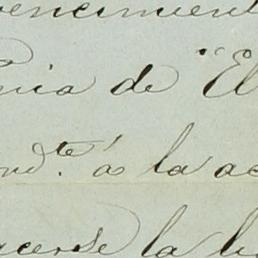 vencimient
nia de "El
nd.te á la ac
acerse la li